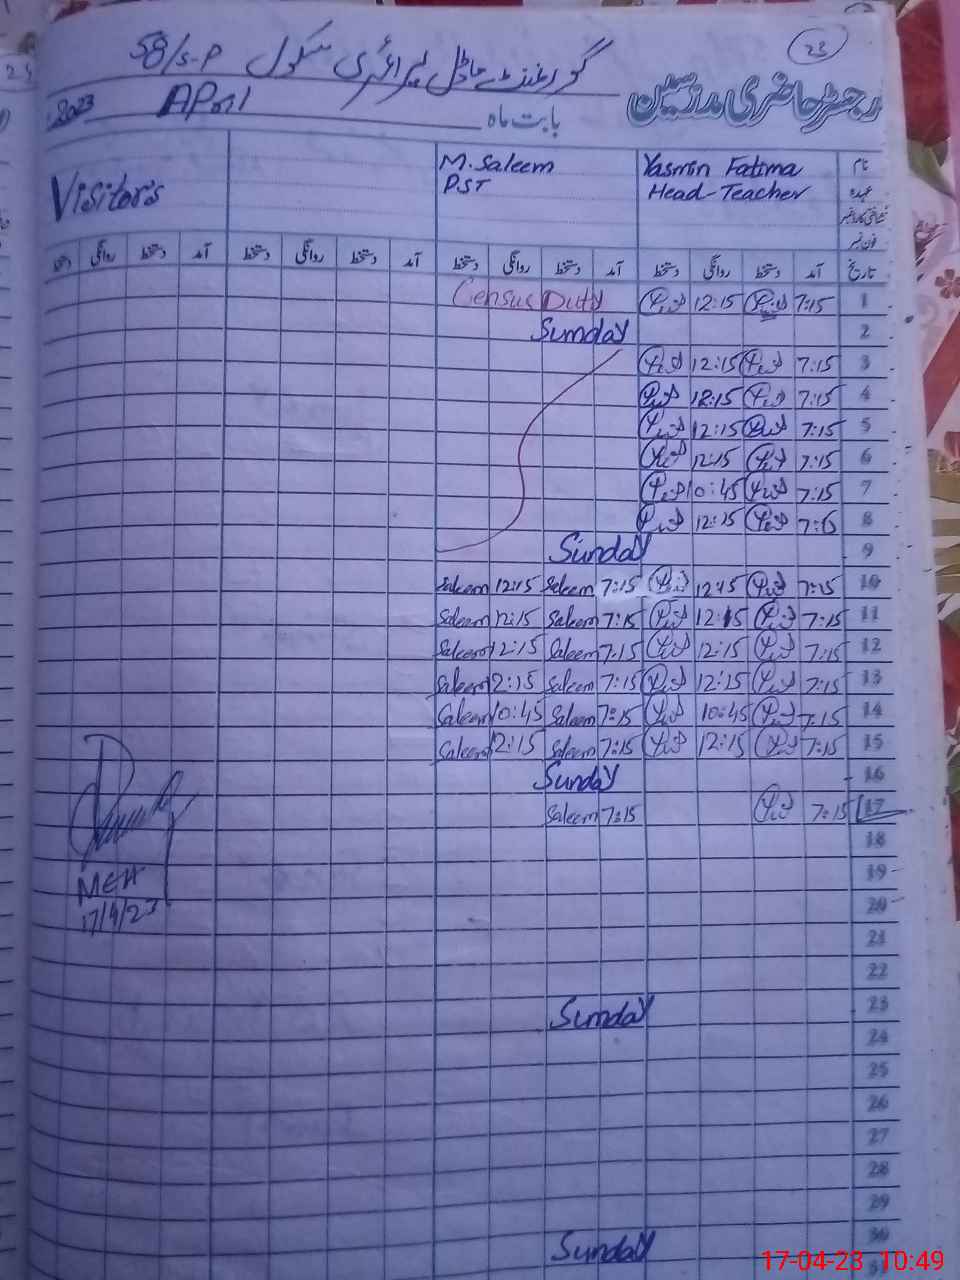 23
گورنمنٹ ماڈل پرائمری سکول 58/S-P
رجسٹر حاضری مدرسین
بابت ماہ April 2023
نام Yasmin Fatima M. Saleem
عہدہ Head-Teacher PST Visitor's
فون نمبر
تاریخ آمد دستخط روانگی دستخط آمد دستخط روانگی دستخط آمد دستخط روانگی دستخط آمد دستخط روانگی
1 7:15 12:15 Census Duty
2 Sunday
3 7:15 12:15
4 7:15 12:15
5 7:15 12:15
6 7:15 12:15
7 7:15 10:45
8 7:15 12:15
9 Sunday
10 7:15 12:15 7:15 Saleem 12:15 Saleem
11 7:15 12:15 7:15 Saleem 12:15 Saleem
12 7:15 12:15 7:15 Saleem 12:15 Saleem
13 7:15 12:15 7:15 Saleem 12:15 Saleem
14 7:15 10:45 7:15 Saleem 10:45 Saleem
15 7:15 12:15 7:15 Saleem 12:15 Saleem
16 Sunday
17 7:15 7:15 Saleem
18
19
MEA
20
17/4/23
21
22
23 Sunday
24
25
26
27
28
29
30 Sunday
31
17-04-23 10:49